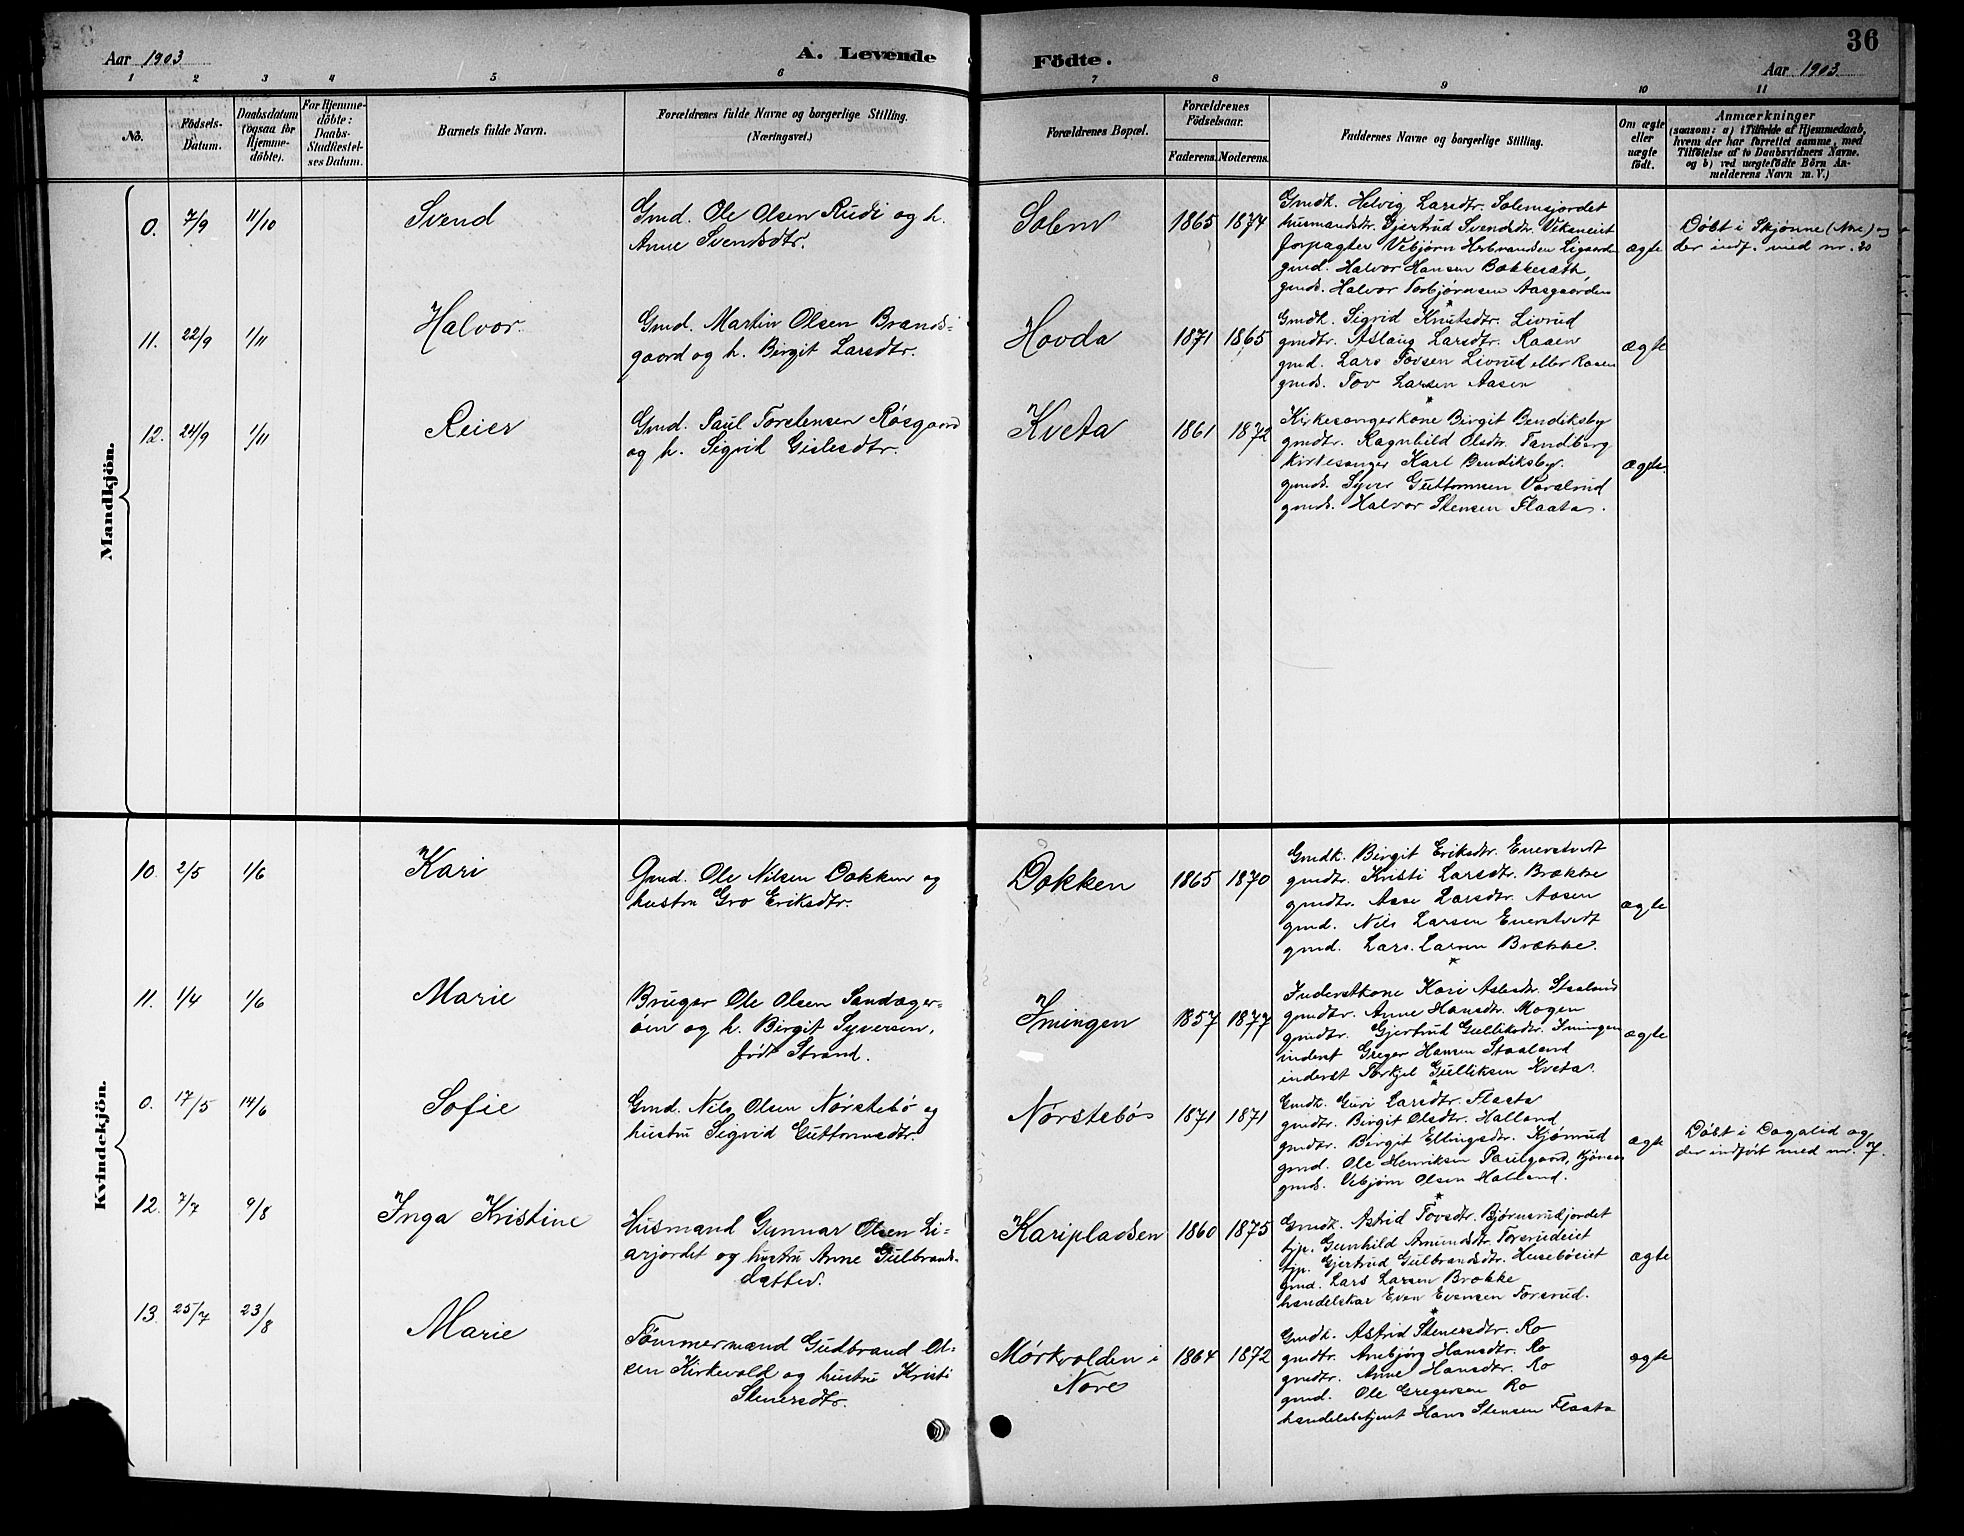 Aar 1903
A. Levende
Födte.
36
Aar 1903.
1 2 3 4 5 6 7 8 9 10 11
No.
Födsels-
Datum.
Daabsdatum
(ogsaa for
Hjemme-
döbte).
For Hjemme-
döbte:
Daabs-
Stadfæstel-
ses Datum.
Barnets fulde Navn.
Forældrenes fulde Navne og borgerlige Stilling.
(Næringsvei.)
Forældrenes Bopæl.
Forældrenes
Födselsaar.
Faderens.
Moderens.
Faddernes Navne og borgerlige Stilling.
Om ægte
eller
uægte
födt.
Anmærkninger
(saasom: a) i Tilfælde af Hjemmedaab,
hvem der har forrettet samme, med
Tilföielse af to Daabsvidners Navne.
og b) ved uægtefödte Börn An-
melderens Navn m. V.)
Mandkjön.
0. 7/9 11/10 Svend
Gmd. Ole Olsen Rudi og h.
Anne Svendsdtr.
Solem 1865 1874
Gmdk. Helvig Larsdtr. Solemsjordet
husmandsdtr. Gjertrud Svendsdtr. Vikeneiet
forpagter Vebjørn Herbrandsen Ligaarden
gmd. Halvor Hansen Bakkesæth
gmds. Halvor Torbjørnsen Aasgaarden
ægte
Døbt i Skjønne (Nore) og
der indf. med nr. 20
11. 22/9 1/11 Halvor.
Gmd. Martin Olsen Brands-
gaard og h. Birgit Larsdtr.
Hovda 1871 1865
Gmdk. Sigrid Knutsdtr. Livrud
gmdtr. Aslaug Larsdtr. Raaen
gmd. Lars Tovsen Livrud eller Raaen
gmds. Tov Larsen Aasen
ægte
12. 24/9 1/11 Reier
Gmd. Paul Torstensen Røsgaard
og h. Sigrid Gislesdtr.
Kveta 1861 1872
Kirkesangerkone Birgit Bendiksby
gmdtr. Ragnhild Olsdtr. Tandberg
kirkesanger Karl Bendiksby.
gmds. Syver Guttormsen Varalrud
gmds. Halvor Stensen Flaata.
ægte.
Kvindekjön.
10. 2/5 1/6 Kari
Gmd. Ole Nilsen Dokken og
hustru Gro Eriksdtr.
Dokken 1865 1870
Gmdk. Birgit Eriksdtr. Enerstvedt
gmdtr. Kristi Larsdtr. Brække
gmdtr. Aase Larsdtr. Aasen
gmd. Nils Larsen Enerstvedt
gmd. Lars Larsen Brække.
ægte
11. 1/4 1/6 Marie
Bruger Ole Olsen Sandager-
øen og h. Birgit Syversen,
født Strand.
Imingen 1857 1877
Inderstkone Kari Aslesdtr. Staaland
gmdtr. Anne Hansdtr. Mogen
gmdtr. Gjertrud Gulliksdtr. Imingen
inderst Greger Hansen Staaland
inderst Torkjel Gulliksen Kveta.
ægte
0. 17/5 14/6 Sofie
Gmd. Nils Olsen Nørstebø og
hustru Sigrid Guttormsdtr.
Nørstebø 1871 1871
Gmdk. Guri Larsdtr. Flaata
gmdtr. Birgit Olsdtr. Halland
gmdtr. Birgit Ellingsdtr. Kjønrud
gmd. Ole Henriksen Paulgaard,
gmds. Vebjørn Olsen Halland.
ægte
Døbt i Dagalid og
der indført med nr. 7.
12. 7/7 9/8 Inga Kristine
Husmand Gunnar Olsen Li-
arjordet og hustru Anne Gulbrands-
datter.
Kariplassen 1860 1875
Gmdk. Astrid Tovsdtr. Bjørnsrudjordet
tjp. Gunhild Amundsdtr. Torsrudeiet
tjp. Gjertrud Gulbrandsdtr. Husebøeiet
gmd. Lars Larsen Brække
handelskar Even Evensen Torsrud.
ægte
13. 25/7 23/8 Marie
Tømmermand Gudbrand Ol-
sen Kirkevold og hustru Kristi
Stenersdtr.
Mørkvolden i
Nore
1864 1872
Gmdk. Astrid Stenersdtr. Ro
gmdtr. Anbjørg Hansdtr. Ro
gmdtr. Anne Hansdtr. Ro
gmd. Ole Gregersen Ro
handelsbetjent Hans Stensen Flaata
ægte